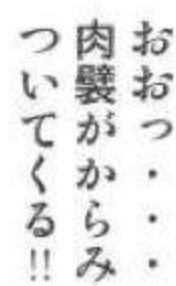 おおっ・・・
肉襞がからみ
ついてくる!!